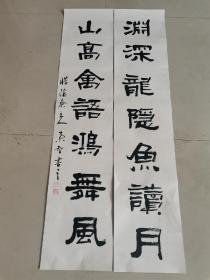 淵深龍隱魚讀月
山高禽語鴻舞風